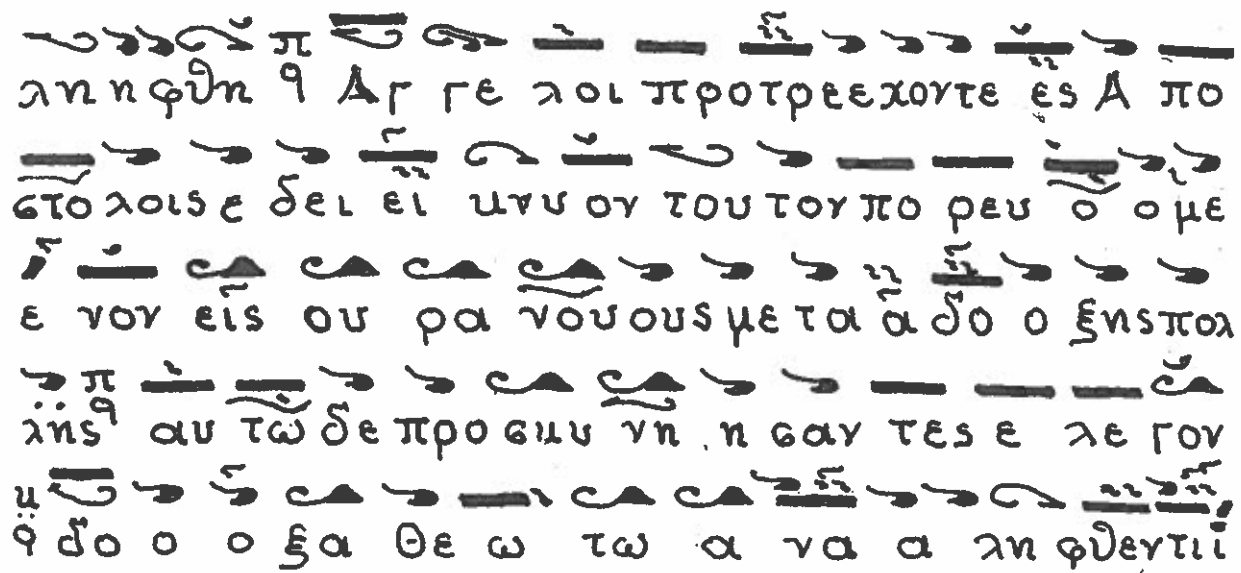 λη η φθη π̅ ᾳ Αγ γε λοι προτρεεχοντε ες Α πο
στο λοις ε δει ει κνυ ον του τον πο ρευ ο ο με
ε νον εις ου ρα νου ους με τα α δο ο ξης πολ
λης π ᾳ αυ τω δε προ σκυ νη η σαν τες ε λε γον
δο ο ο ξα Θε ω τω α να α λη φθεν τι ι